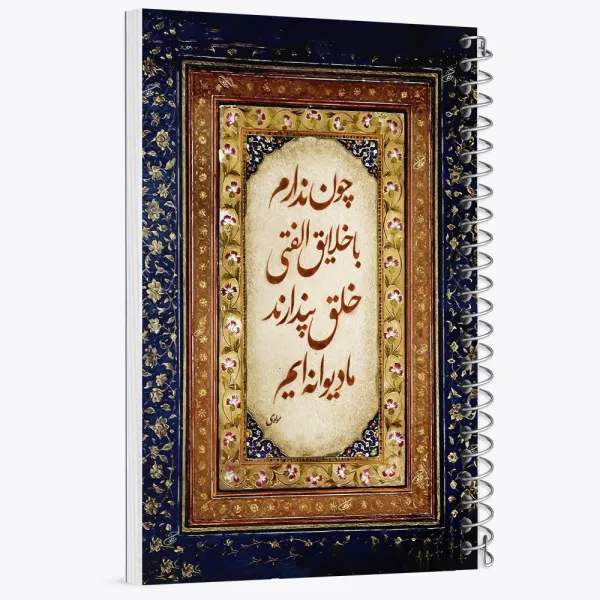 چون ندارم
با خلایق الفتی
خلق پندارند
ما دیوانه ایم
مولوی